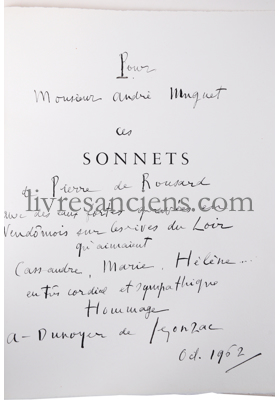 Pour
Monsieur André Muguet
ces
SONNETS
de Pierre de Ronsard
avec des eaux fortes gravées en
Vendômois sur les rives du Loir
qu'aimaient
Cassandre, Marie, Hélène...
en très cordial et sympathique
Hommage
A. Dunoyer de Segonzac
Oct. 1962
livresanciens.com